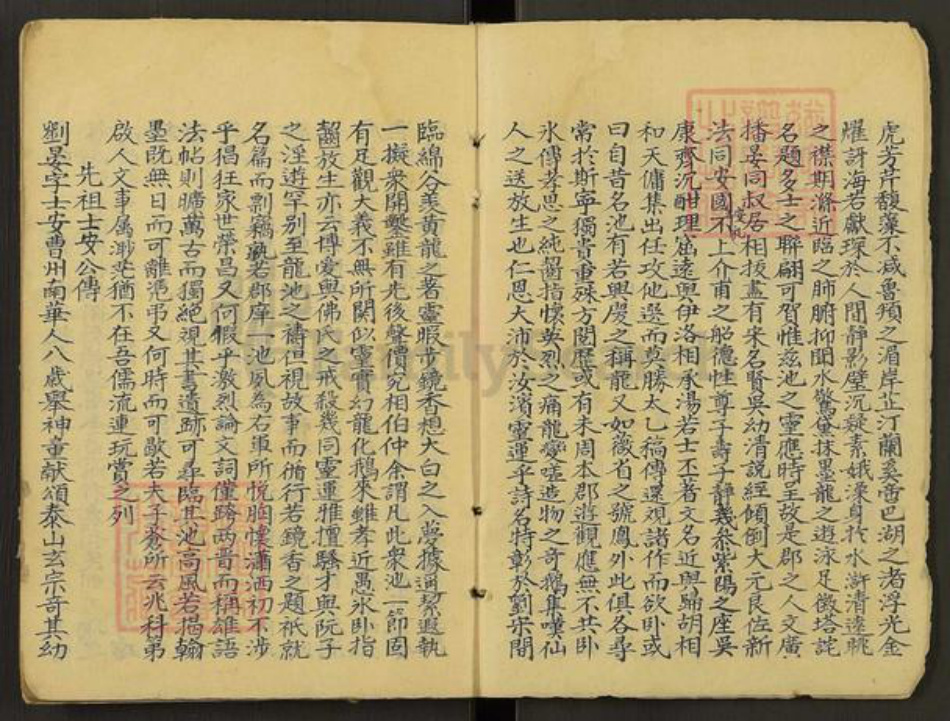 虎芳芹馥藻不减魯頖之湄岸芷汀蘭奚啻巴湖之渚浮光金
耀訝海若獻琛於人間靜影璧沉疑素娥澡身扵水滸清遠眺
之襟期滌近臨之肺腑抑聞水驚黛抹墨龍之遊泳足徵塔詫
名題多士之聯翩可賀惟兹池之靈應時呈故是郡之人文廣
播晏同叔居相拔盡有宋名賢吳幼清説經傾倒大元良佐新
法同安國不上介甫之船德性尊子壽子靜幾叅紫陽之座吳
康齊沉酣理窟遠與伊洛相承湯若士丕著文名近與歸胡相
和天傭集出任攻他選而莫勝太乙稿傳還观諸作而欲卧或
曰自昔名池有若興慶之稱龍又如薇省之號鳳外此俱各尋
常扵斯寧獨貴重殊方閲歷或有未周本郡遊觀應無不共卧
氷傳孝思之純齧指懷英烈之痛龍變嗟造物之奇鵝集嘆仙
人之送放生也仁恩大沛於汝濱靈運乎詩名特彰於劉宋閒
臨綿谷羙黃龍之著靈暇步鏡香想大白之入夢據通繫遐執
一擬衆開鑿雖有先後聲價究相伯仲余謂凡此衆池一節固
有足觀大義不無所関似靈實幻龍化鵝來雖孝近愚氷卧指
齧放生亦云博愛與佛氏之戒殺幾同靈運雅擅騷才與阮子
之淫遊罕别至龍池之禱但視故事而脩行若鏡香之題祇就
名篇而剽竊孰若郡庠一池夙為右軍所悅胸懷瀟洒初不涉
乎猖狂家世榮昌又何假乎激烈論文詞僅跨兩晋而稱雄語
法帖則曠萬古而獨絕視其書遺跡可尋臨其池高風若揭翰
墨既無日而可離憑弔又何時而可歇若夫子裔所云兆科第
啟人文事属渺茫猶不在吾儒流連玩賞之列
先祖士安公傳
劉晏字士安曹州南華人八歲舉神童献頌泰山玄宗奇其幼